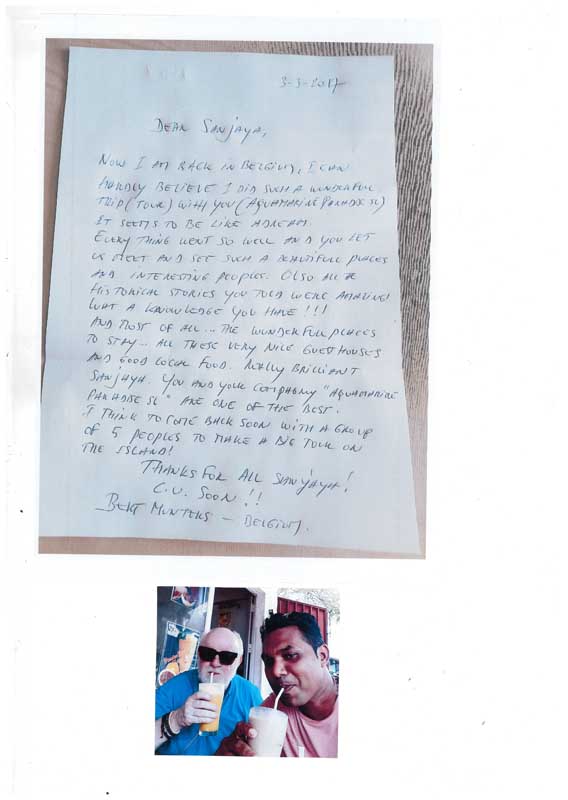 3-3-2017
DEAR SANJAYA,
NOW I AM BACK IN BELGIUM, I CAN
HARDLY BELIEVE I DID SUCH A WUNDERFUL
TRIP (TOUR) WITH YOU (AQUAMARINE PARADISE SL)
IT SEEMS TO BE LIKE A DREAM.
EVERY THING WENT SO WELL AND YOU LET
US MEET AND SEE SUCH A BEAUTIFULL PLACES
AND INTERESTING PEOPLES. OLSO ALL
HISTORICAL STORIES YOU TOLD WERE AMAZING!
WAT A KNOWLEDGE YOU HAVE !!!
AND MOST OF ALL... THE WUNDERFULL PLACES
TO STAY... ALL THESE VERY NICE GUESTHOUSES
AND GOOD LOCAL FOOD. REALLY BRILLIANT
SANJAYA. YOU AND YOUR COMPHANY "AQUAMARINE
PARADISE SL" ARE ONE OF THE BEST.
I THINK TO COME BACK SOON WITH A GROUP
OF 5 PEOPLES TO MAKE A BIG TOUR ON
THE ISLAND!
THANKS FOR ALL SANJAYA!
C.U. SOON !!
BERT MUNTERS - BELGIUM.